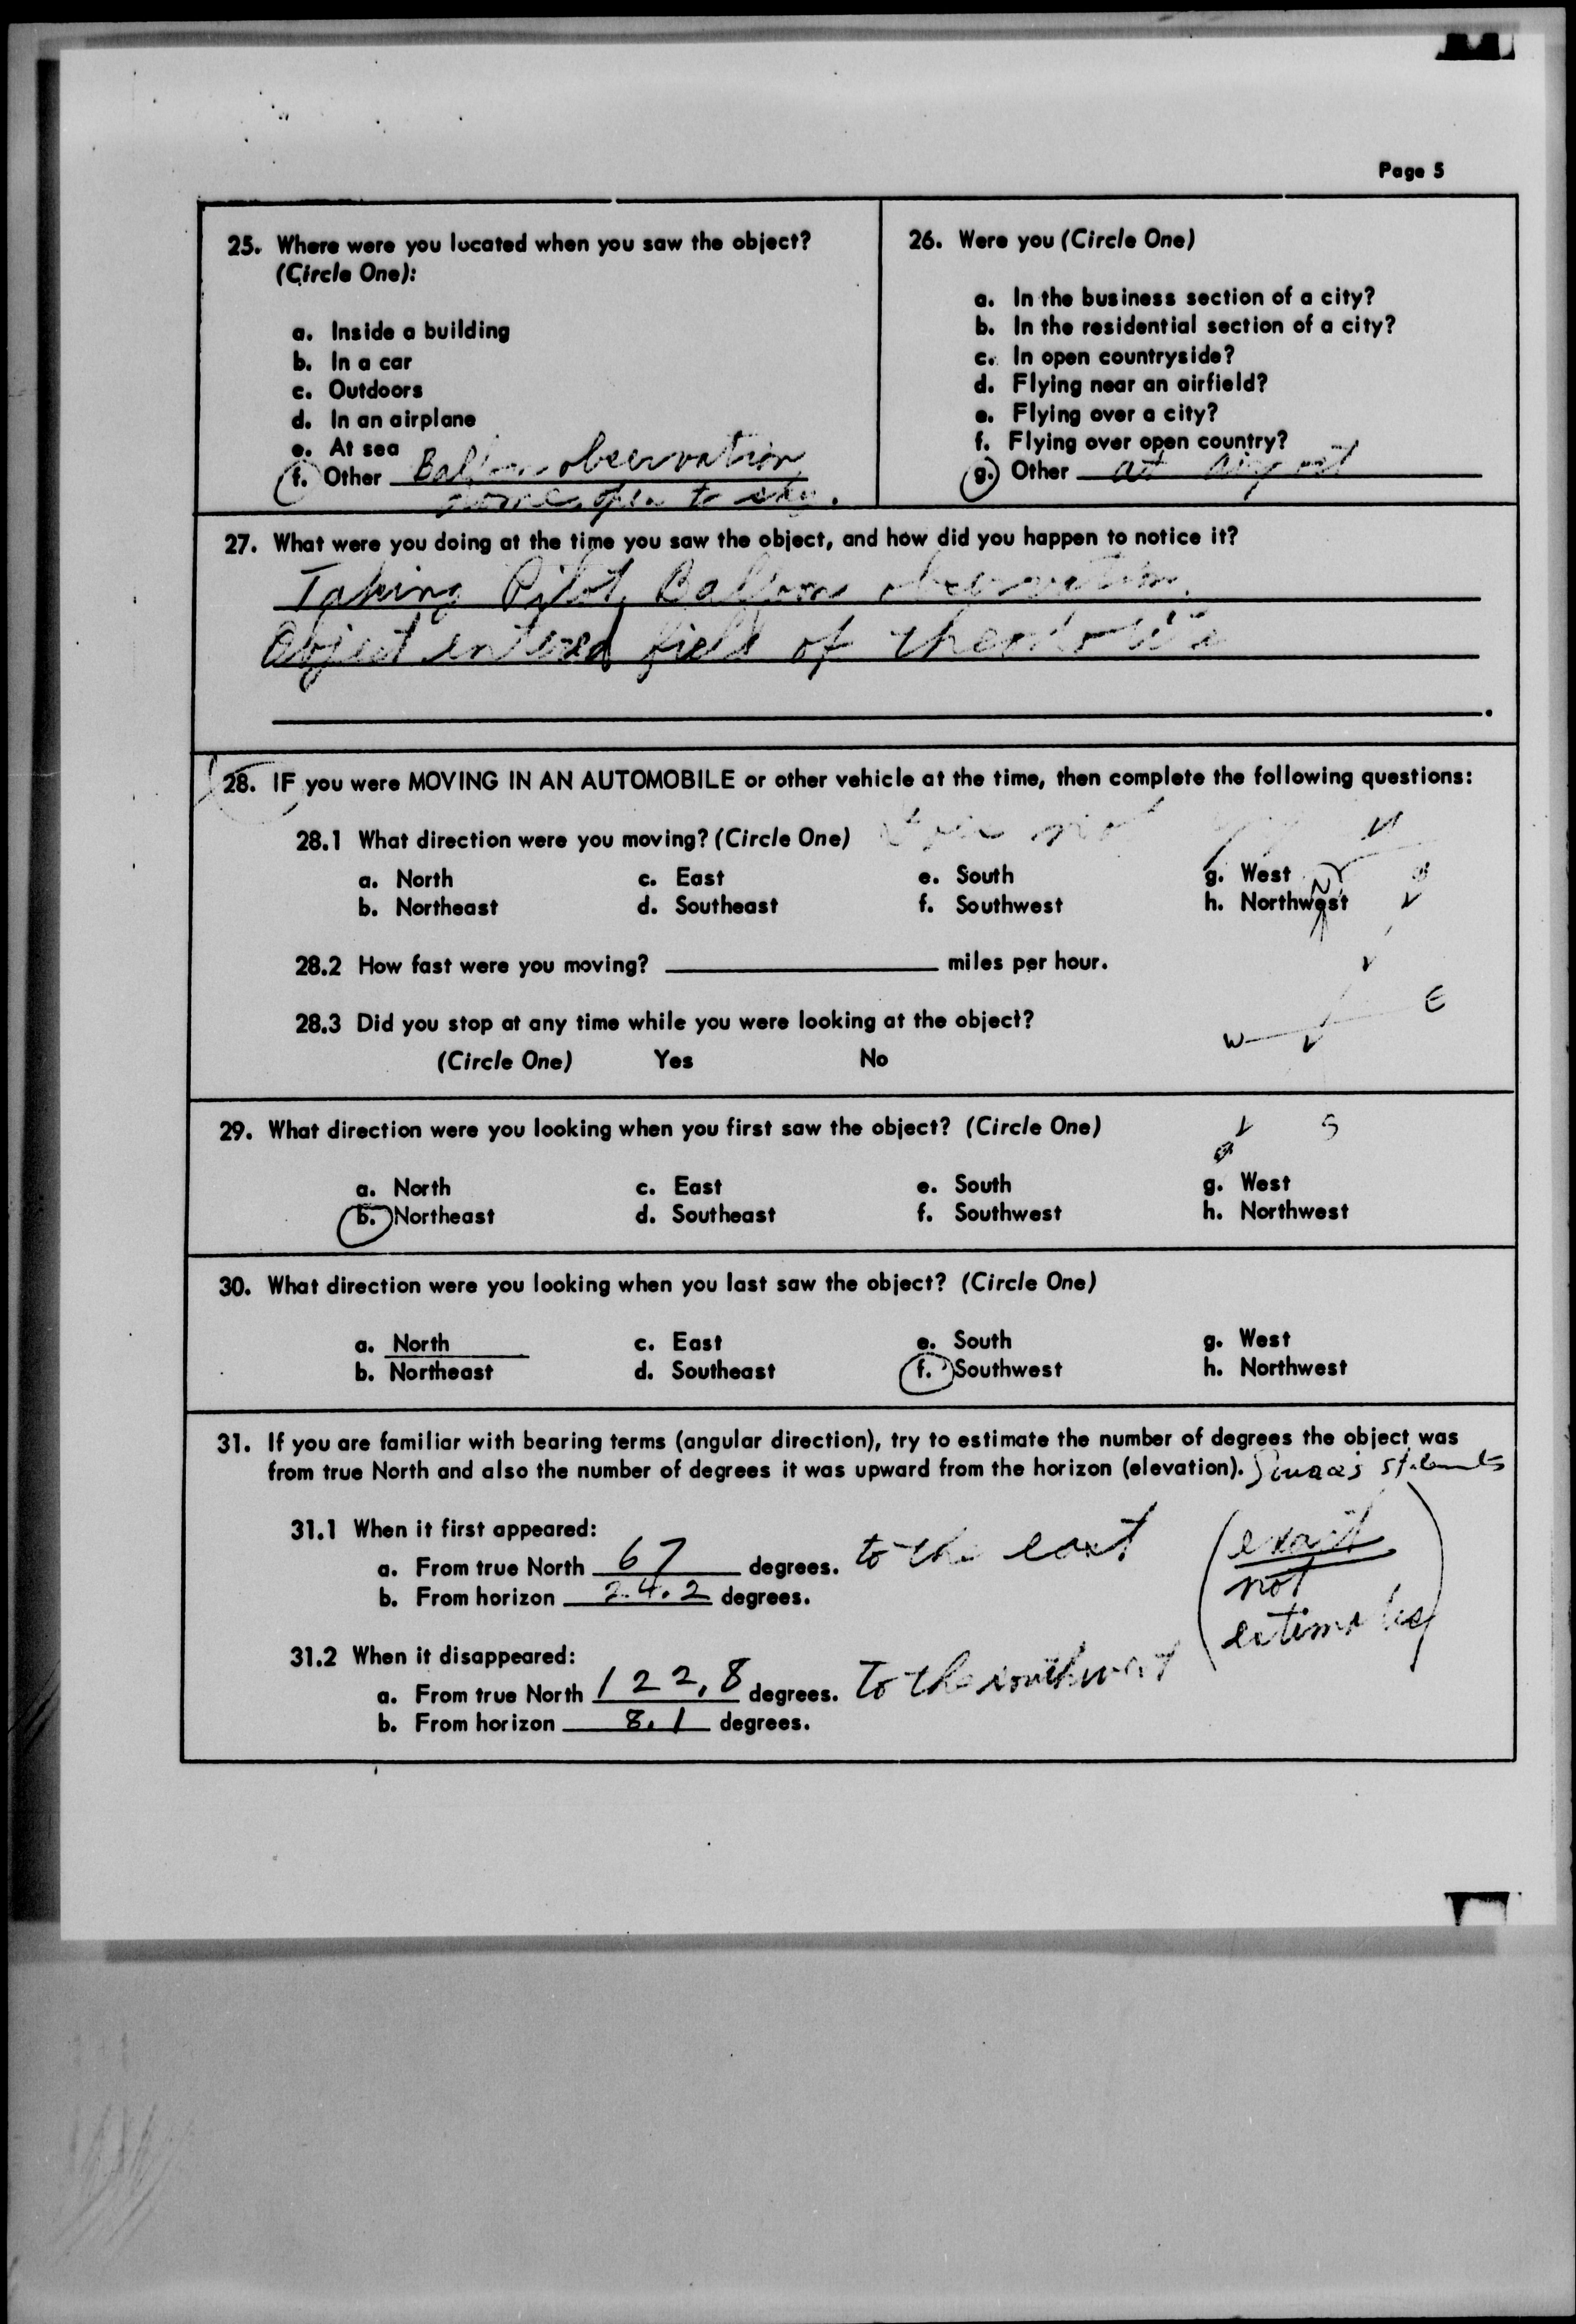 Page 5
25. Where were you located when you saw the object?
(Circle One):
a. Inside a building
b. In a car
c. Outdoors
d. In an airplane
e. At sea
f. Other Balloon observation
dome, open to sky.
26. Were you (Circle One)
a. In the business section of a city?
b. In the residential section of a city?
c. In open countryside?
d. Flying near an airfield?
e. Flying over a city?
f. Flying over open country?
g. Other at airport
27. What were you doing at the time you saw the object, and how did you happen to notice it?
Taking Pilot Balloon observation.
Object entered field of theodolite
.
28. IF you were MOVING IN AN AUTOMOBILE or other vehicle at the time, then complete the following questions:
28.1 What direction were you moving? (Circle One) not
a. North c. East e. South g. West
b. Northeast d. Southeast f. Southwest h. Northwest
N
28.2 How fast were you moving? miles per hour.
E
28.3 Did you stop at any time while you were looking at the object?
W
(Circle One) Yes No
29. What direction were you looking when you first saw the object? (Circle One)
S
a. North c. East e. South g. West
b. Northeast d. Southeast f. Southwest h. Northwest
30. What direction were you looking when you last saw the object? (Circle One)
a. North c. East e. South g. West
b. Northeast d. Southeast f. Southwest h. Northwest
31. If you are familiar with bearing terms (angular direction), try to estimate the number of degrees the object was
from true North and also the number of degrees it was upward from the horizon (elevation).
31.1 When it first appeared:
a. From true North 67 degrees. to the east
b. From horizon 24.2 degrees.
(exact
not
estimates)
31.2 When it disappeared:
a. From true North 122.8 degrees. To the southwest
b. From horizon 8.1 degrees.